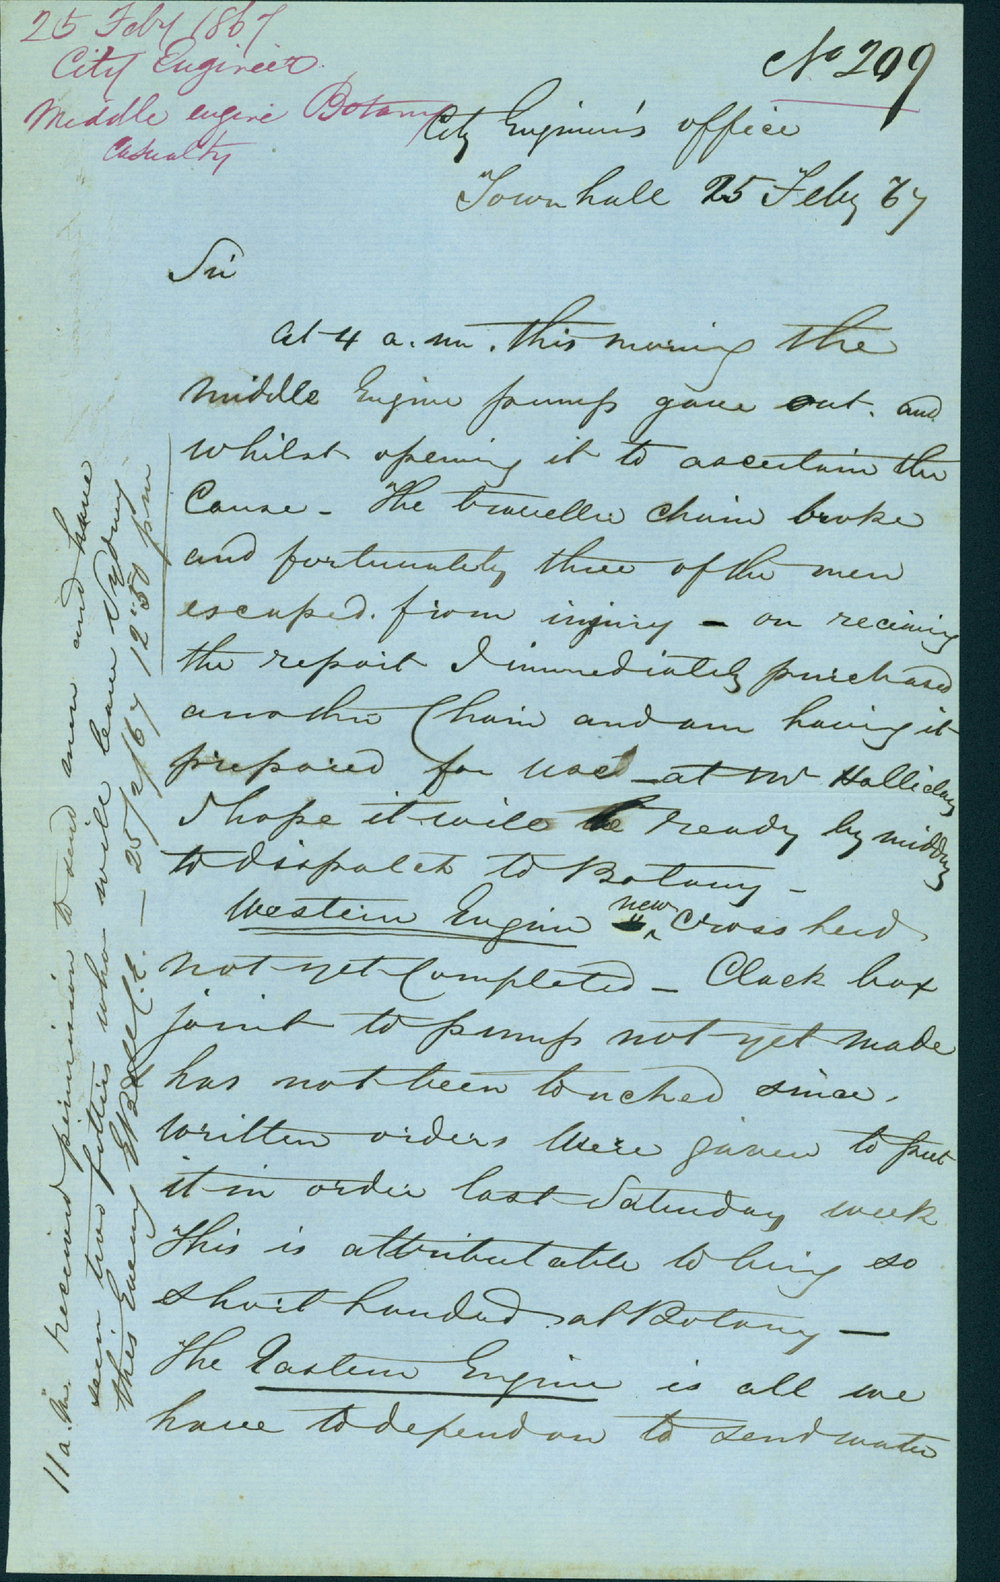 25 Feby 1867
City Engineer.
Middle engine Botany
Casualty
No 209
City Engineer's office
Town hall 25 Feby 67
Sir
At 4 a.m. this morning the
middle Engine pump gave out. and
whilst opening it to ascertain the
Cause - The traveller chain broke
and fortunately three of the men
escaped. from injury - on receiving
the report I immediately purchased
another Chain and am having it
prepared for use at Mr Hallidays
I hope it will be ready by midday
to dispatch to Botany -
Western Engine new Cross head
not yet Completed - Clack box
joint to pump not yet made
has not been touched since.
written orders were given to put
it in order last Saturday week
This is attributable to being so
short handed at Botany -
The Eastern Engine is all we
have to depend on to send water
11 a.m. received permission to send men and have
seen two fitters who will leave Sydney
this Evening E Bell C.E. - 25/2/67 12.50 pm